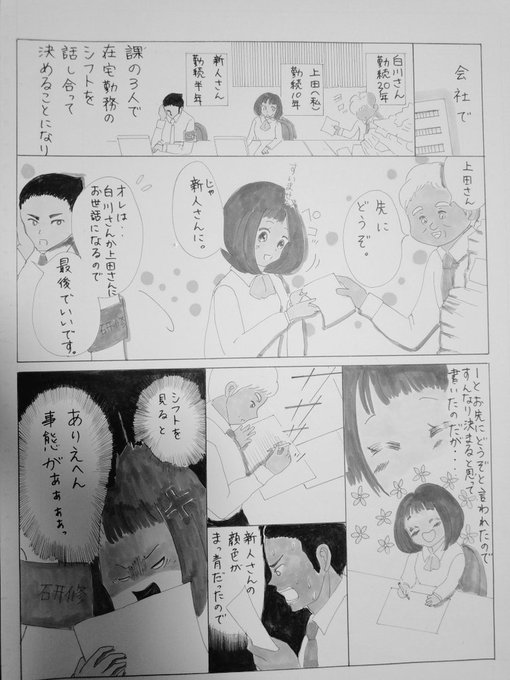 会社で
白川さん
勤続30年
上田(私)
勤続10年
新人さん
勤続半年
課の3人で
在宅勤務の
シフトを
話し合って
決めることになり
上田さん
先に
どうぞ。
ペコッ
じゃ
新人さんに。
オレは・・
白川さんか上田さんに
お世話になるので
最後でいいです。
ーとお先にどうぞと言われたので
すんなり決まると思って
書いたのだが・・・・
新人さんの
顔色が
まっ青だったので
シフトを
見ると
ありえへん
事態がぁぁぁぁっ